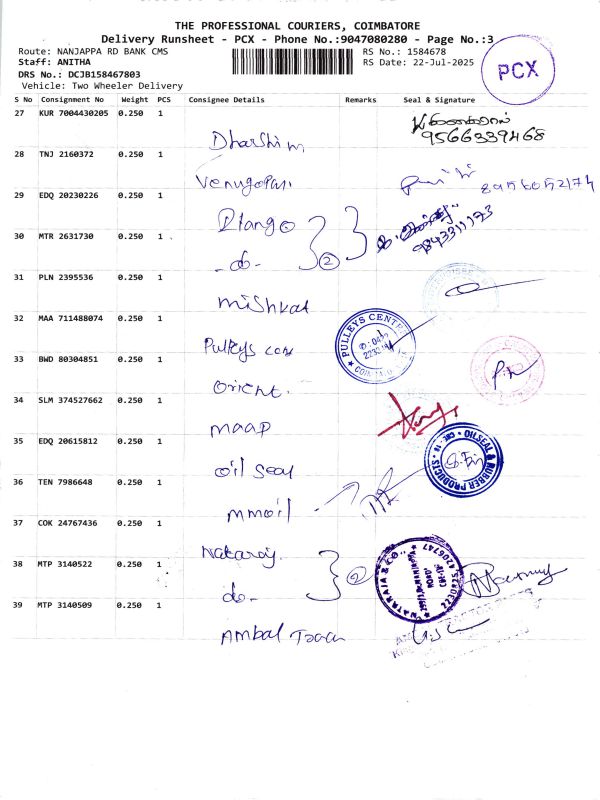 THE PROFESSIONAL COURIERS, COIMBATORE
Delivery Runsheet - PCX - Phone No.:9047080280 - Page No.:3
Route: NANJAPPA RD BANK CMS
RS No.: 1584678
Staff: ANITHA
RS Date: 22-Jul-2025
DRS No.: DCJB158467803
Vehicle: Two Wheeler Delivery
PCX
S No Consignment No Weight PCS Consignee Details Remarks Seal & Signature
27 KUR 7004430205 0.250 1
9566339468
Dharshini
28 TNJ 2160372 0.250 1
Venugopal
8956052174
29 EDQ 20230226 0.250 1
Elango
9843311173
30 MTR 2631730 0.250 1
-do- 2
31 PLN 2395536 0.250 1
Mishkat
32 MAA 711488074 0.250 1
Pulleys cen
PULLEYS CENTRE
33 BWD 80304851 0.250 1
Orient.
34 SLM 374527662 0.250 1
maap
35 EDQ 20615812 0.250 1
oil seal
OILSEAL & RUBBER PRODUCTS CBE-18
36 TEN 7986648 0.250 1
mmoil
37 COK 24767436 0.250 1
Nataraj.
38 MTP 3140522 0.250 1
do- 2
NATARAJA & CO.,
39 MTP 3140509 0.250 1
Ambal Traan